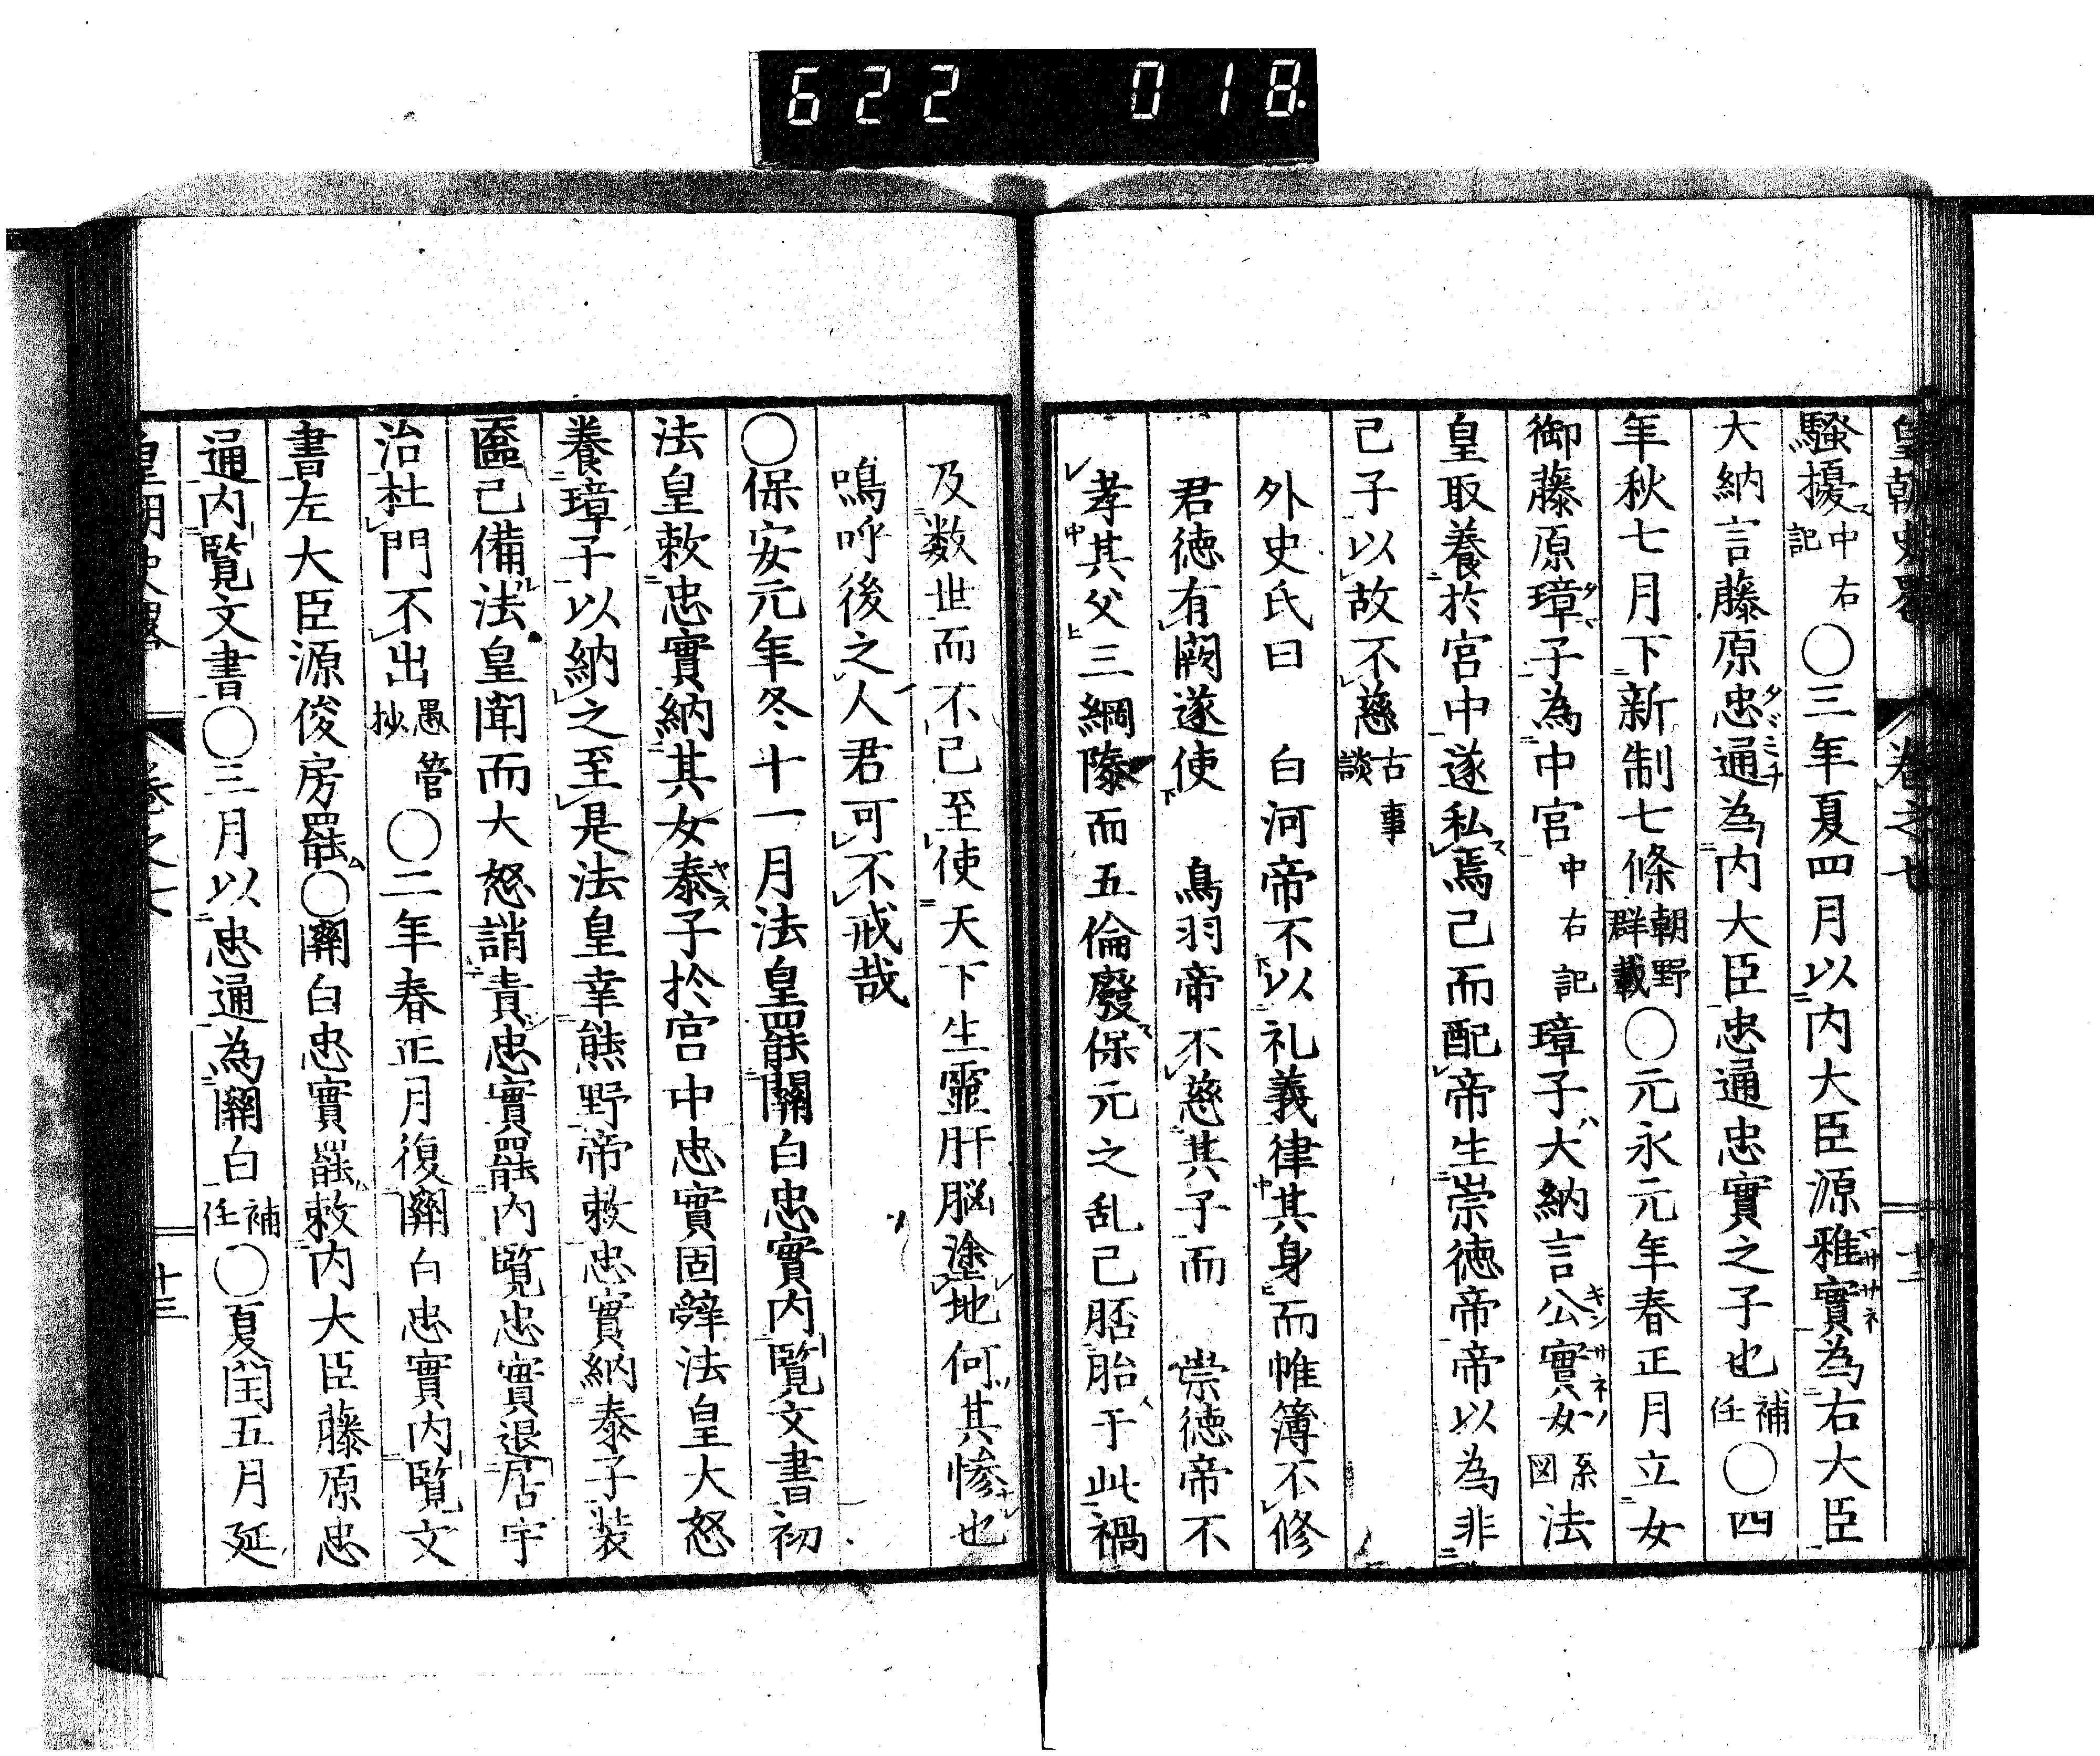 622 018
皇朝史畧 卷之七 十二
騷擾中右記○三年夏四月以内大臣源雅實為右大臣
大納言藤原忠通為内大臣忠通忠實之子也補任○四
年秋七月下新制七條朝野群載○元永元年春正月立女
御藤原璋子為中宮中右記璋子大納言公實女系図法
皇取養於宮中遂私焉己而配帝生崇徳帝帝以為非
己子以故不慈古事談
外史氏曰 白河帝不以礼義律其身而帷簿不修
君徳有闕遂使 鳥羽帝不慈其子而 崇徳帝不
孝其父三綱隳而五倫廢保元之乱己胚胎于此禍
及数世而不己至使天下生靈肝脳塗地何其惨也
嗚呼後之人君可不戒哉
○保安元年冬十一月法皇罷關白忠實内覧文書初
法皇敕忠實納其女泰子於宮中忠實固辭法皇大怒
養璋子以納之至是法皇幸熊野帝敕忠實納泰子装
匳己備法皇聞而大怒誚責忠實罷内覧忠實退居宇
治杜門不出愚管抄○二年春正月復關白忠實内覧文
書左大臣源俊房罷○關白忠實罷敕内大臣藤原忠
通内覧文書○三月以忠通為關白補任○夏閏五月延
皇朝史畧 卷之七 十三